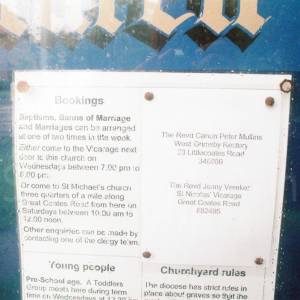 Bookings
Baptisms, Banns of Marriage
and Marriages can be arranged
at one of two times in the week.
Either come to the Vicarage next
door to this church on
Wednesdays between 7.00 pm to
8.00 pm.
Or come to St Michael's church
three quarters of a mile along
Great Coates Road from here on
Saturdays between 10.00 am to
12.00 noon.
Other enquiries can be made by
contacting one of the clergy team.
The Revd Canon Peter Mullins
West Grimsby Rectory
23 Littlecoates Road
346986
The Revd Jenny Vereker
St Nicolas' Vicarage
Great Coates Road
882495
Young people
Pre-School age. A Toddlers
Group meets here during term
time on Wednesdays at
Churchyard rules
The diocese has strict rules in
place about graves so that the